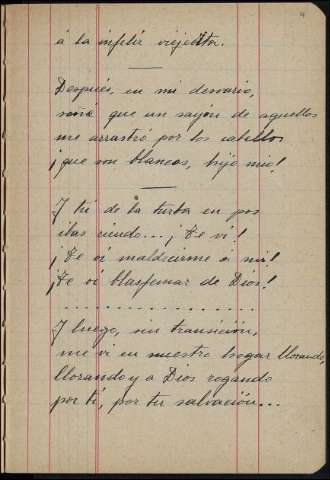 á la infeliz viejecita.
Después, en mi desvarío,
soñé que un sayón de aquellos
me arrastró por los cabellos
¡que son blancos, hijo mío!
Y tú de la turba en pos
ibas riendo... ¡Te ví!
¡Te oí maldecirme á mí!
¡Te oí blasfemar de Dios!
Y luego, sin transición,
me ví en nuestro hogar llorando,
llorando y a Dios rogando
por tí, por tu salvación...